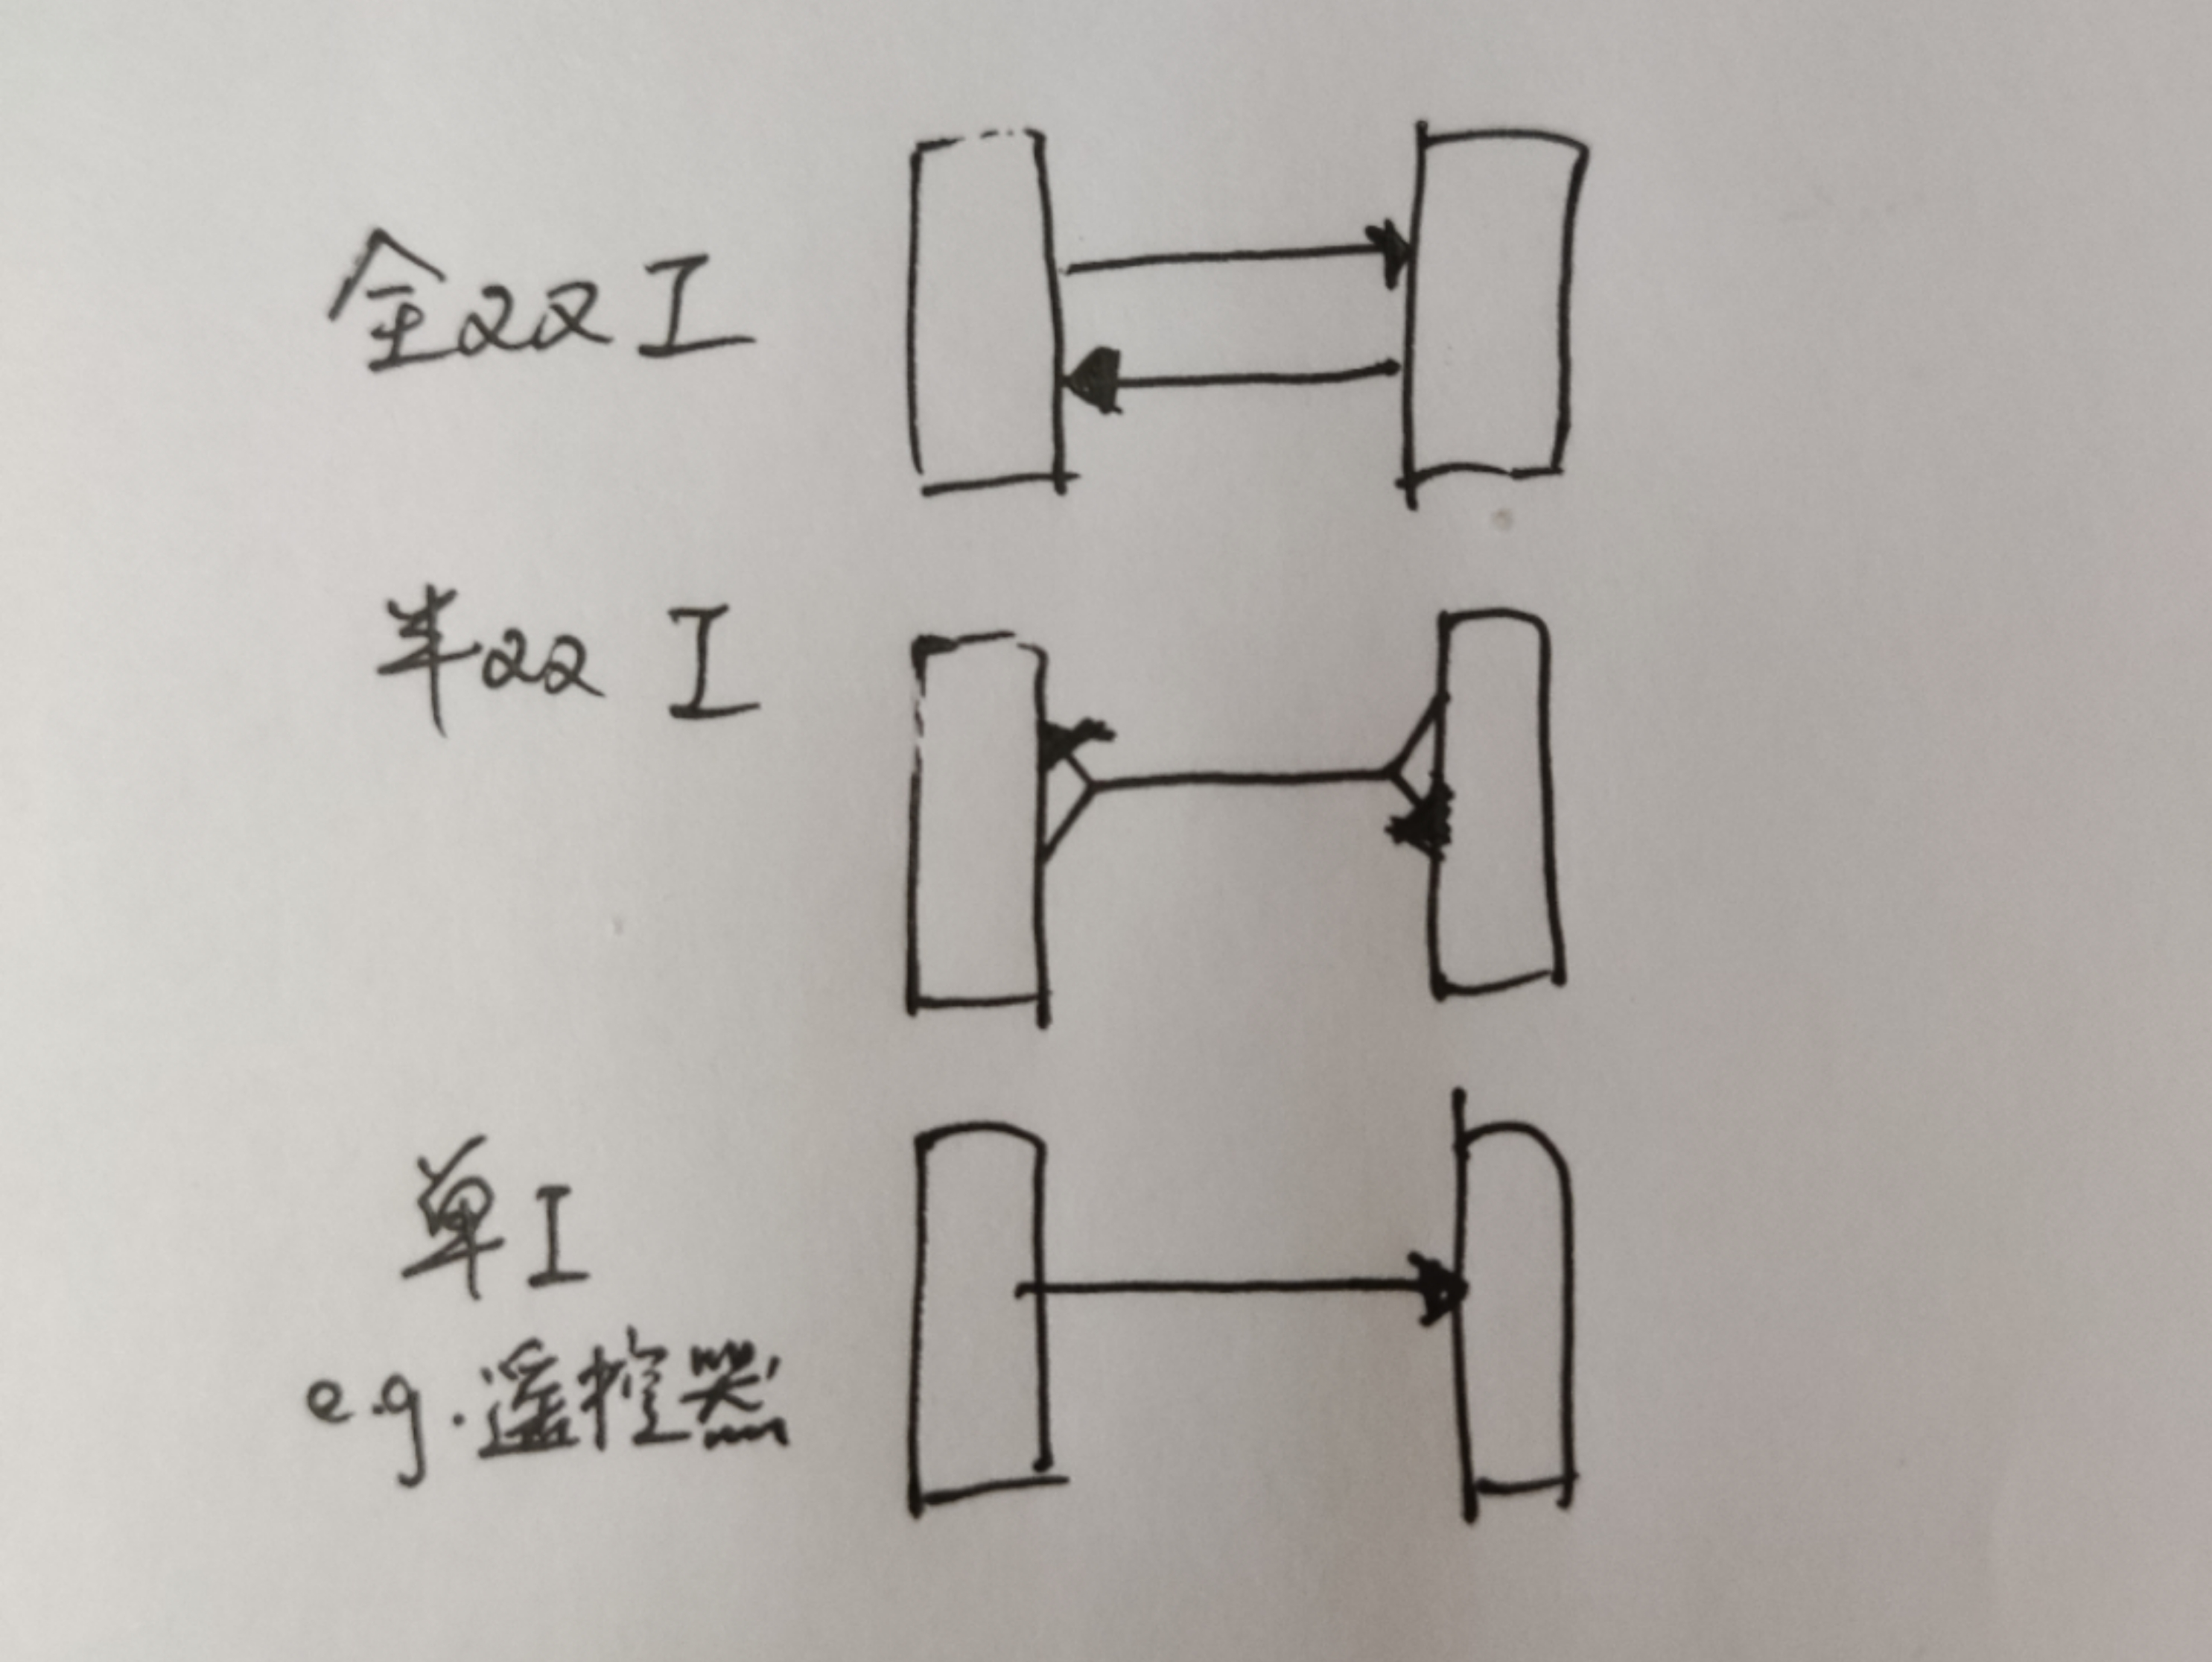 全双工
半双工
单工
e.g.遥控器